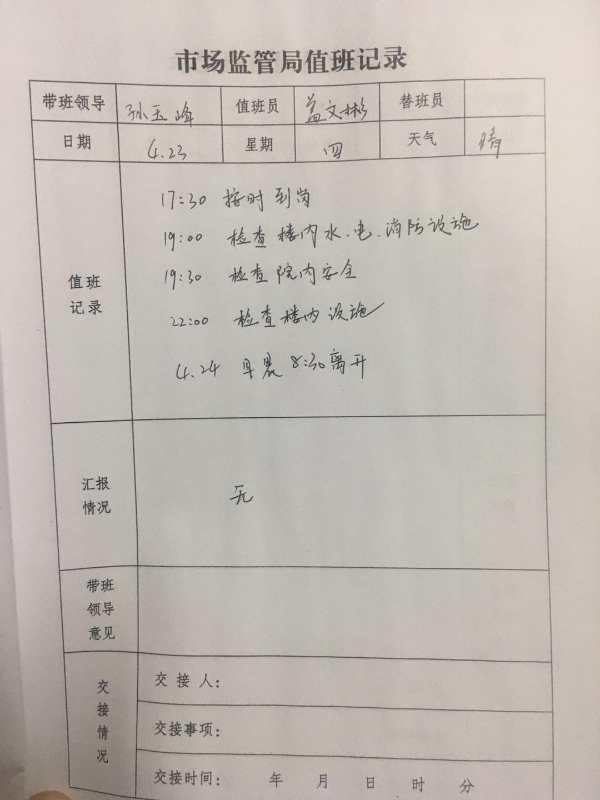 市场监管局值班记录
带班领导 孙玉峰 值班员 盖文彬 替班员
日期 4.23 星期 四 天气 晴
值班记录
17:30 按时到岗
19:00 检查楼内水、电、消防设施
19:30 检查院内安全
22:00 检查楼内设施
4.24 早晨8:30离开
汇报情况
无
带班领导意见
交接情况
交接人:
交接事项:
交接时间: 年 月 日 时 分